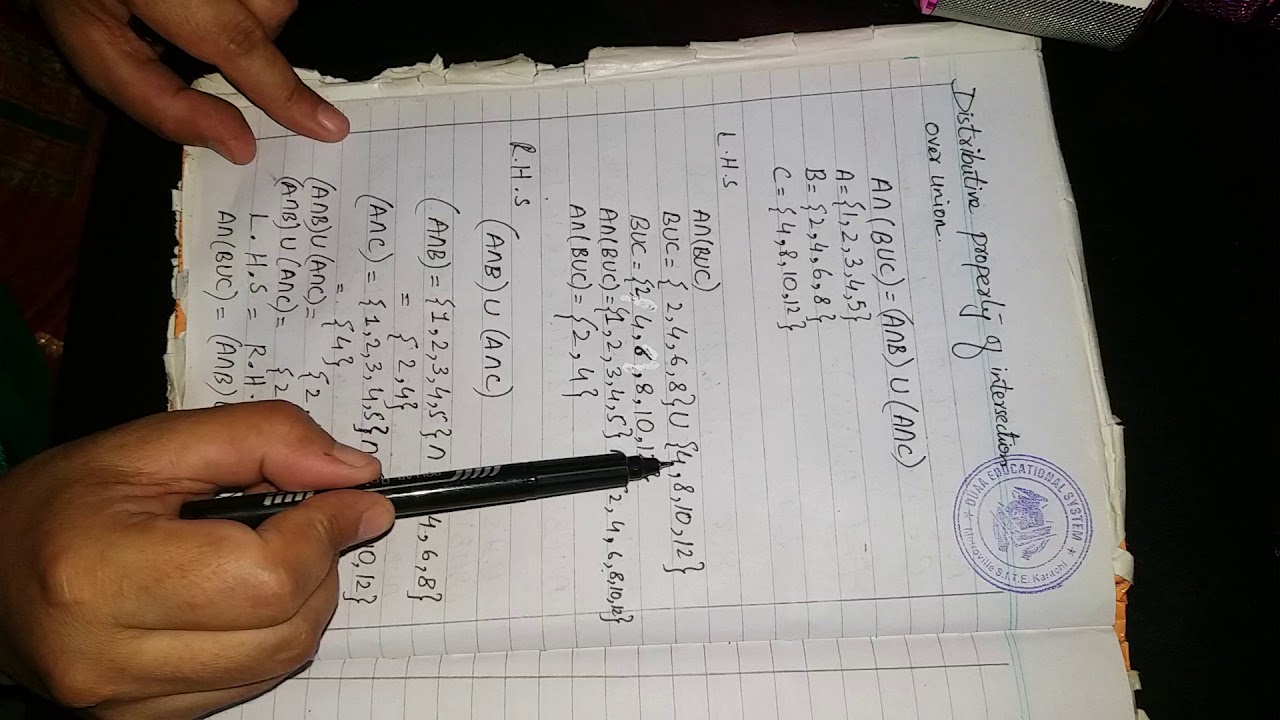 Distributive property of intersection
over union.
A∩(BUC) = (A∩B) U (A∩C)
A={1,2,3,4,5}
B={2,4,6,8}
C={4,8,10,12}
L.H.S
A∩(BUC)
BUC= {2,4,6,8}U{4,8,10,12}
BUC={2,4,6,8,10,1
A∩(BUC)={1,2,3,4,5} 2,4,6,8,10,12}
A∩(BUC)={2,4}
R.H.S
(A∩B) U (A∩C)
(A∩B)={1,2,3,4,5}∩ 4,6,8}
= {2,4}
(A∩C) = {1,2,3,4,5}∩ 10,12}
= {4}
(A∩B)U(A∩C)= {2,
(A∩B)U(A∩C)= {2
L.H.S = R.H.
A∩(BUC) = (A∩B)
DUAA EDUCATIONAL SYSTEM
S.I.T.E. Karachi